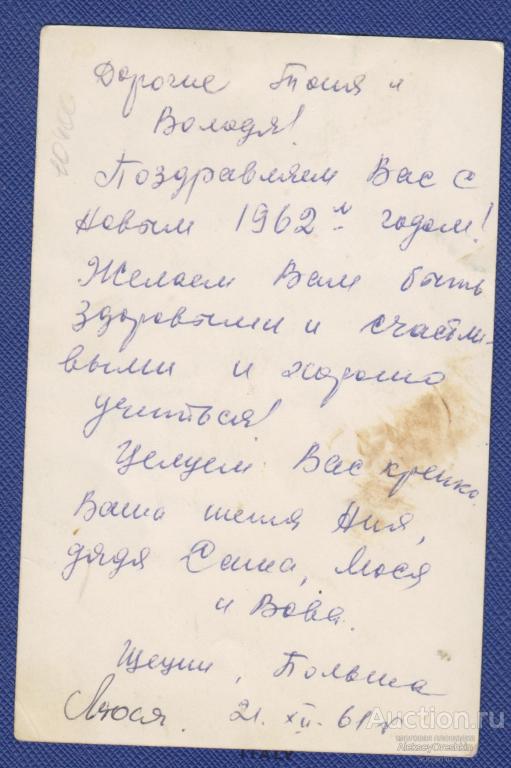 Дорогие Тоня и
Володя!
Поздравляем Вас с
Новым 1962м годом!
Желаем Вам быть
здоровыми и счастли-
выми и хорошо
учиться!
Целуем Вас крепко.
Ваша тетя Аня,
дядя Саша, Люся
и Вова.
Щецин, Польша
Люся. 21. XII. 61 г.
Auction.ru
торговая площадка
AlekseyOreshkin